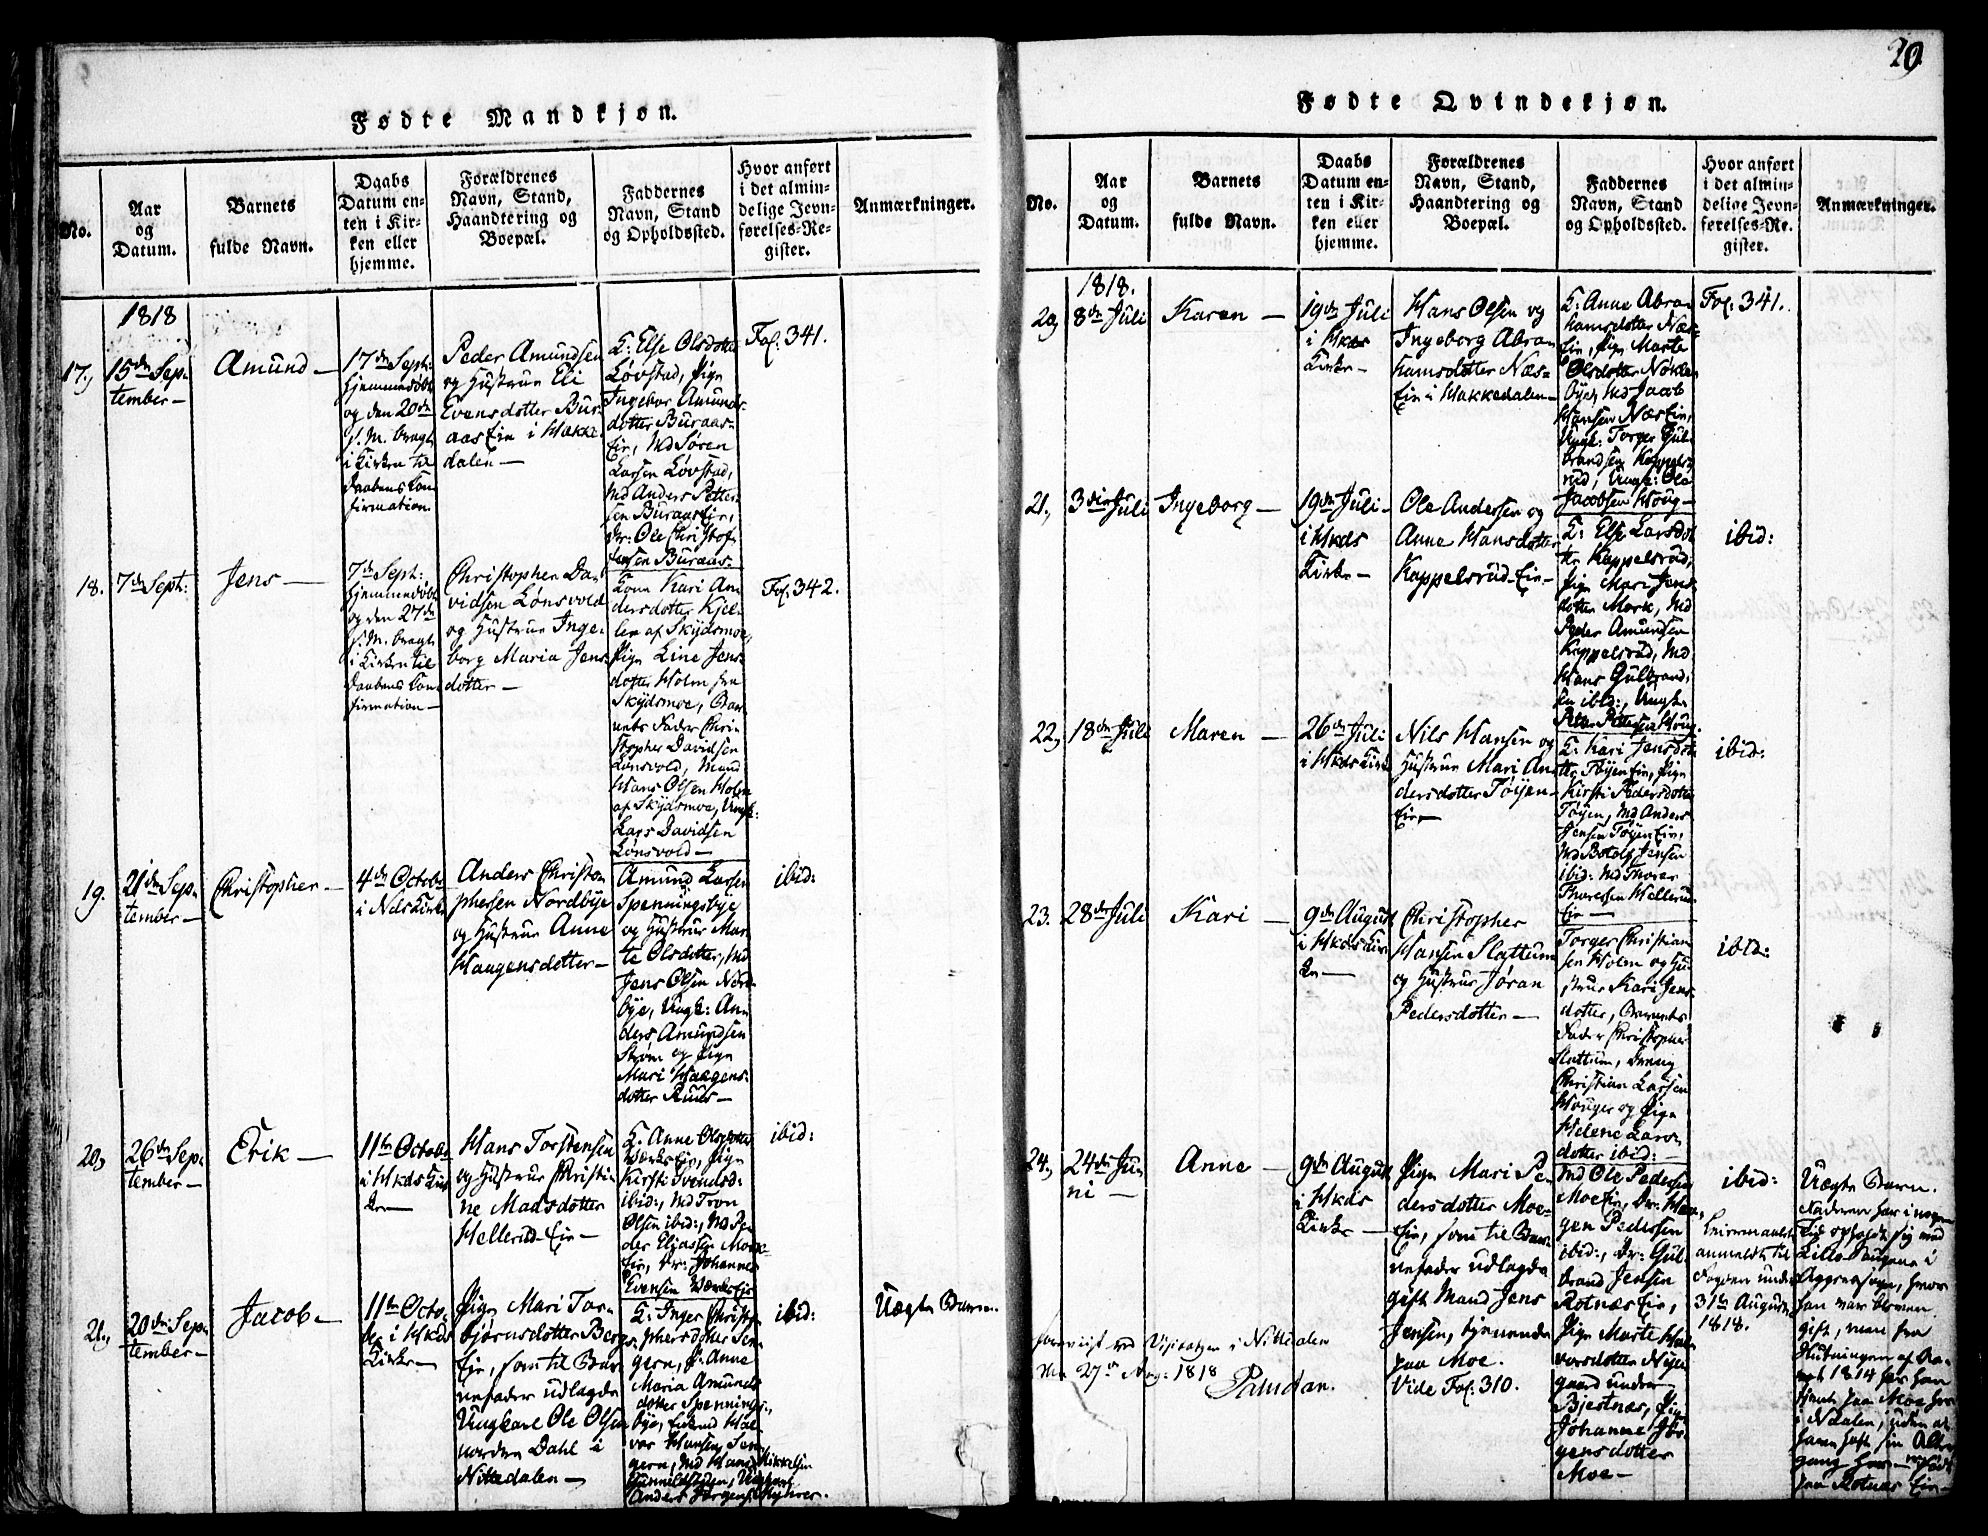 Fødte Mandkjøn.
No.
Aar
og
Datum.
Barnets
fulde Navn.
Daabs
Datum en-
ten i Kir-
ken eller
hjemme.
Forældrenes
Navn, Stand,
Haandtering og
Boepæl.
Faddernes
Navn, Stand
og Opholdssted.
Hvor anført
i det almin-
delige Jevn-
førelses-Re-
gister.
Anmærkninger.
1818
17,
15de Sep-
tember—
Amund—
17de Sept:
hjemmedøbt
og den 20de
s. M. bragt
i Kirken til
Daabens Con-
firmation.
Peder Amundsen
og Hustrue Eli
Evensdotter Bur-
aas Eie i Hakke-
dalen—
K: Else Olsdotter
Løvstad, Pige
Ingebor Amunds-
dotter Buraas-
Eie, Md Søren
Larsen Løvstad,
Md Anders Petter-
sen BuraasEie,
Dr: Ole Christof-
fersen Buraas-
Fol. 341.
18.
7de Sept:
Jens—
7de Sept:
hjemmedøbt
og den 27de
s. M. bragt
i Kirken til
Daabens Con-
firmation—
Christopher Da-
vidsen Lønsvold
og Hustrue Inge-
borg Maria Jens-
dotter—
Kone Kari An-
dersdotter Kjel-
len af Skydsmoe,
Pige Line Jens-
dotter Holm fra
Skydsmoe, Bar-
nets Fader Chri-
stopher Davidsen
Lønsvold, Mand
Hans Olsen Holm
af Skydsmoe, Ungk:
Lars Davidsen
Lønsvold—
Fol. 342.
19.
21de Sep-
tember—
Christopher—
4de Octobr
i Nds Kirke
Anders Christo-
phersen Nordbye
og Hustrue Anne
Haagensdotter—
Amund Larsen
Spenningsbye
og Hustrue Mar-
te Olsdotter, Md
Jens Olsen Nord-
bye, Ungk: An-
ders Amundsen
Strøm og Pige
Mari Haagens-
dotter Ruus—
ibid:
20,
26de Sep-
tember—
Erik—
11te Octobr
i Hkds Kir-
ke—
Hans Torstensen
og Hustrue Christi-
ne Madsdotter
Hellerud-Eie—
K. Anne Olsdotter
VærksEie, Pige
Kirsti Svendsd:
ibid:, Md Tron
Olsen ibid:, Md Pe-
der Eliassen Moe-
Eie, Dr: Johannes
Evensen VærksEie
ibid:
21,
20de Sep-
tember—
Jacob—
11te Octo-
br i Hkds
Kirke—
Pige Mari Tor-
bjørnsdotter Bergs-
Eie, som til Bar-
nefader udlagde
Ungkarl Ole Olsen
nordre Dahl i
Nittedalen—
K: Inger Christo-
phersdotter Sen-
gern, P: Anne
Maria Amunds-
dotter Spennings-
bye, Halvor Hansen Sen-
gern, Md Hans Mikkelsen
Anders Jørgensen
ibid:
Uægte Barn.
20
Fødte Qvindekjøn.
No.
Aar
og
Datum.
Barnets
fulde Navn.
Daabs
Datum en-
ten i Kir-
ken eller
hjemme.
Forældrenes
Navn, Stand,
Haandtering og
Boepæl.
Faddernes
Navn, Stand
og Opholdssted.
Hvor anført
i det almin-
delige Jevn-
førelses-Re-
gister.
Anmærkninger.
1818.
20,
8de Juli
Karen—
19de Juli
i Hkds
Kirke—
Hans Olsen og
Ingeborg Abra-
hamsdotter Næs-
Eie i Hakkedalen—
K: Anne Abra-
hamsdotter Næs-
Eie, Pige Marte
Olsdotter Nøkle-
bye, Md Jacob
Hansen NæsEie,
Ungk: Torger Gul-
brandsen Kappels-
rud, Ungk: Ole
Jacobsen Houg—
Fol. 341.
21,
3die Juli
Ingeborg—
19de Juli-
i Hkds
Kirke—
Ole Andersen og
Anne Hansdotter
Kappelsrud-Eie—
K: Else Larsdot-
ter Kappelsrud,
Pige Mari Jens-
dotter Mork, Md
Peder Amundsen
Kappelsrud, Md
Hans Gulbrand-
sen ibid:, Ungk:
Peter Pettersen Houg.
ibid:
22,
18de Juli
Maren—
26de Juli
i Hkds Kirke
Nils Hansen og
Hustrue Mari An-
dersdotter Tøyen-
Eie—
K: Kari Jensdot-
ter TøyenEie, Pige
Kirsti Pedersdotter
Tøyen, Md Anders
Jensen TøyenEie,
Md Botolf Jensen
ibid: Md Thorer
Thoresen Hellerud-
Eie—
ibid:
23.
28de Juli
Kari—
9de August
i Hkds Kir-
ke—
Christopher
Hansen Slattum
og Hustrue Jøran
Pedersdotter—
Torger Christian-
sen Holm og Hu-
strue Kari Jens-
dotter, Barnets
Fader Christopher
Slattum, Dreng
Christian Larsen
Houger og Pige
Helene Lars-
dotter ibid:—
ibid:
24,
24de Ju-
ni—
Anne—
9de August
i Hkds
Kirke—
Pige Mari Pe-
dersdotter Moe-
Eie, som til Bar-
nefader udlagde
gift Mand Jens
Jensen, tjenende
paa Moe.
Vide Fol. 310.
Md Ole Pedersen
MoeEie, Dr: Haa-
gen Pedersen
ibid:, Dr: Gul-
brand Jensen
RotnæsEie,
Pige Marte Hal-
vorsdotter Nye-
gaard under
Bjertnæs, Pige
Johanne Jør-
gensdotter
Moe—
ibid:
Leiermaalet
anmeldt til
Fogden under
31te August
1818.
Uægte Barn.
Faderen har i nogen
Tid opholdt sig ved
Lillehaugene i
Aggers Sogn, hvor
han var bleven
gift, men fra
Flytningen af Aa-
ret 1814 har han
tjent paa Moe her
i Ndalen, uden at
have havt sin Alter-
gang her—
paa Rotnæs Eie—
Foreviist ved Visitatsen i Nittedalen
den 27de Aug: 1818
Paludan.